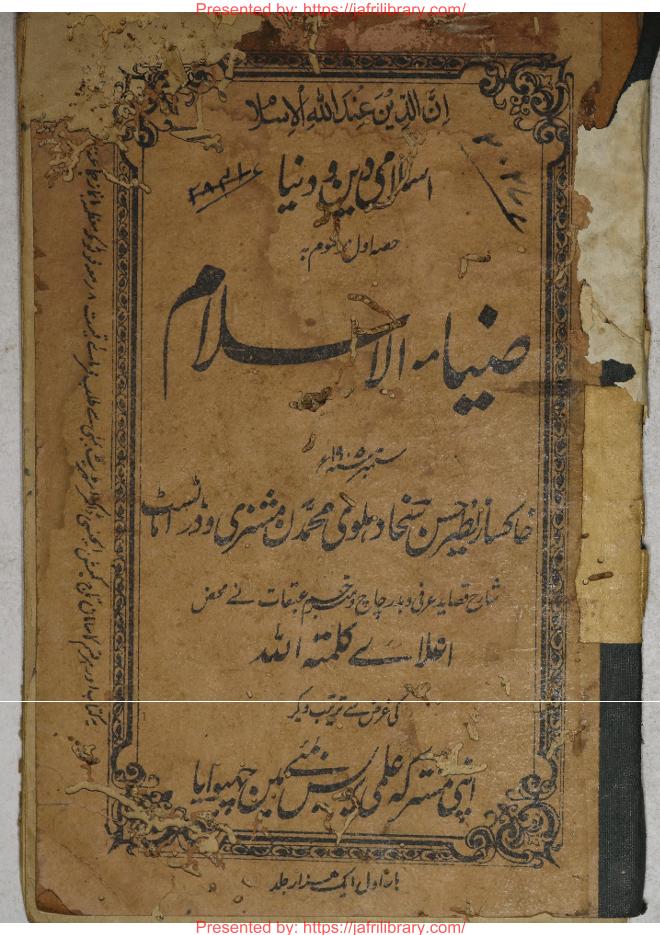 Presented by: https://jafrilibrary.com/
ان الدین عند الله الاسلام
اسلامی دین و دنیا
حصہ اول موسوم بہ
ضیاء الاسلام
ستمبر ۱۹۰۵ء
خاکسار نظیر حسن سخا دہلوی محمڈن مشنری و ڈرٹسٹ
شارح قصاید عرفی و بدر چاچ و مترجم عبقات نے محض
اعلاے کلمتہ اللہ
کی غرض سے ترتیب دیکر
اپنی مشترکہ علمی پریس بمبئی مین چھپوایا
بار اول ایک ہزار جلد
Presented by: https://jafrilibrary.com/